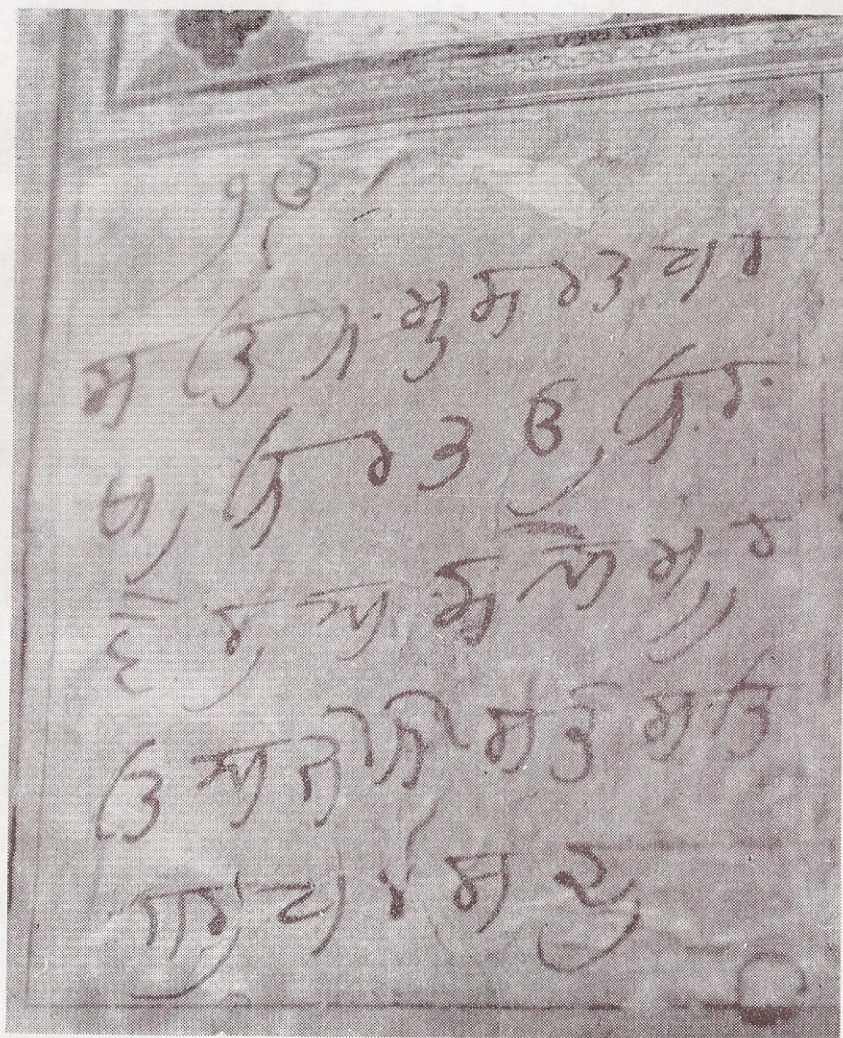 ੧ਓ
ਸਤਿ ਨੰਮੁ ਕਰਤ ਪੁਰ
ਖੁ ਨਿਰਭਉ ਨਿਰ
ਵੈਰੁ ਅਕਾਲ ਮੂਰ
ਤਿ ਅਜੋਨੀ ਸਭੰ ਸਤਿ
ਗੁਰ ਪਰਸਦੁ